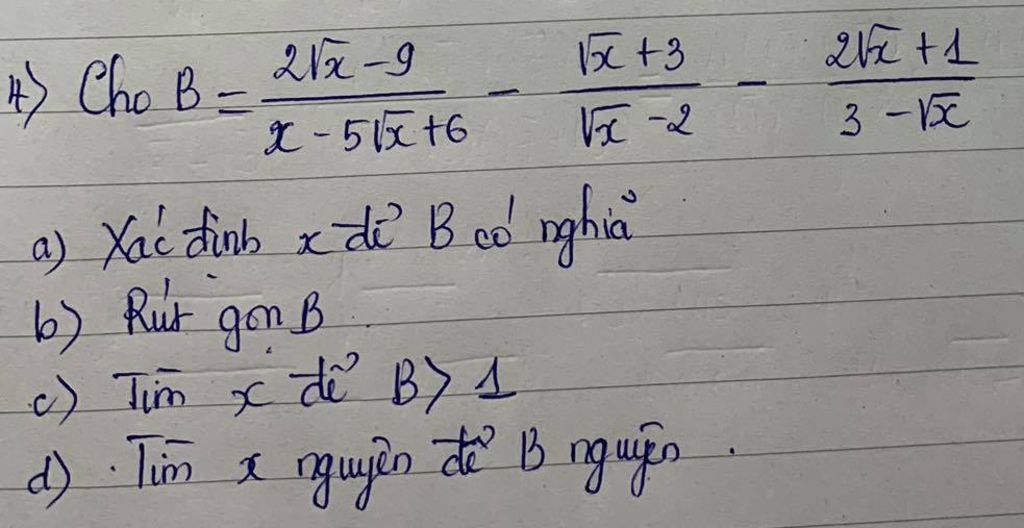 4) Cho B = \frac{2\sqrt{x} - 9}{x - 5\sqrt{x} + 6} - \frac{\sqrt{x} + 3}{\sqrt{x} - 2} - \frac{2\sqrt{x} + 1}{3 - \sqrt{x}}
a) Xác định x để B có nghĩa
b) Rút gọn B
c) Tìm x để B > 1
d) Tìm x nguyên để B nguyên.